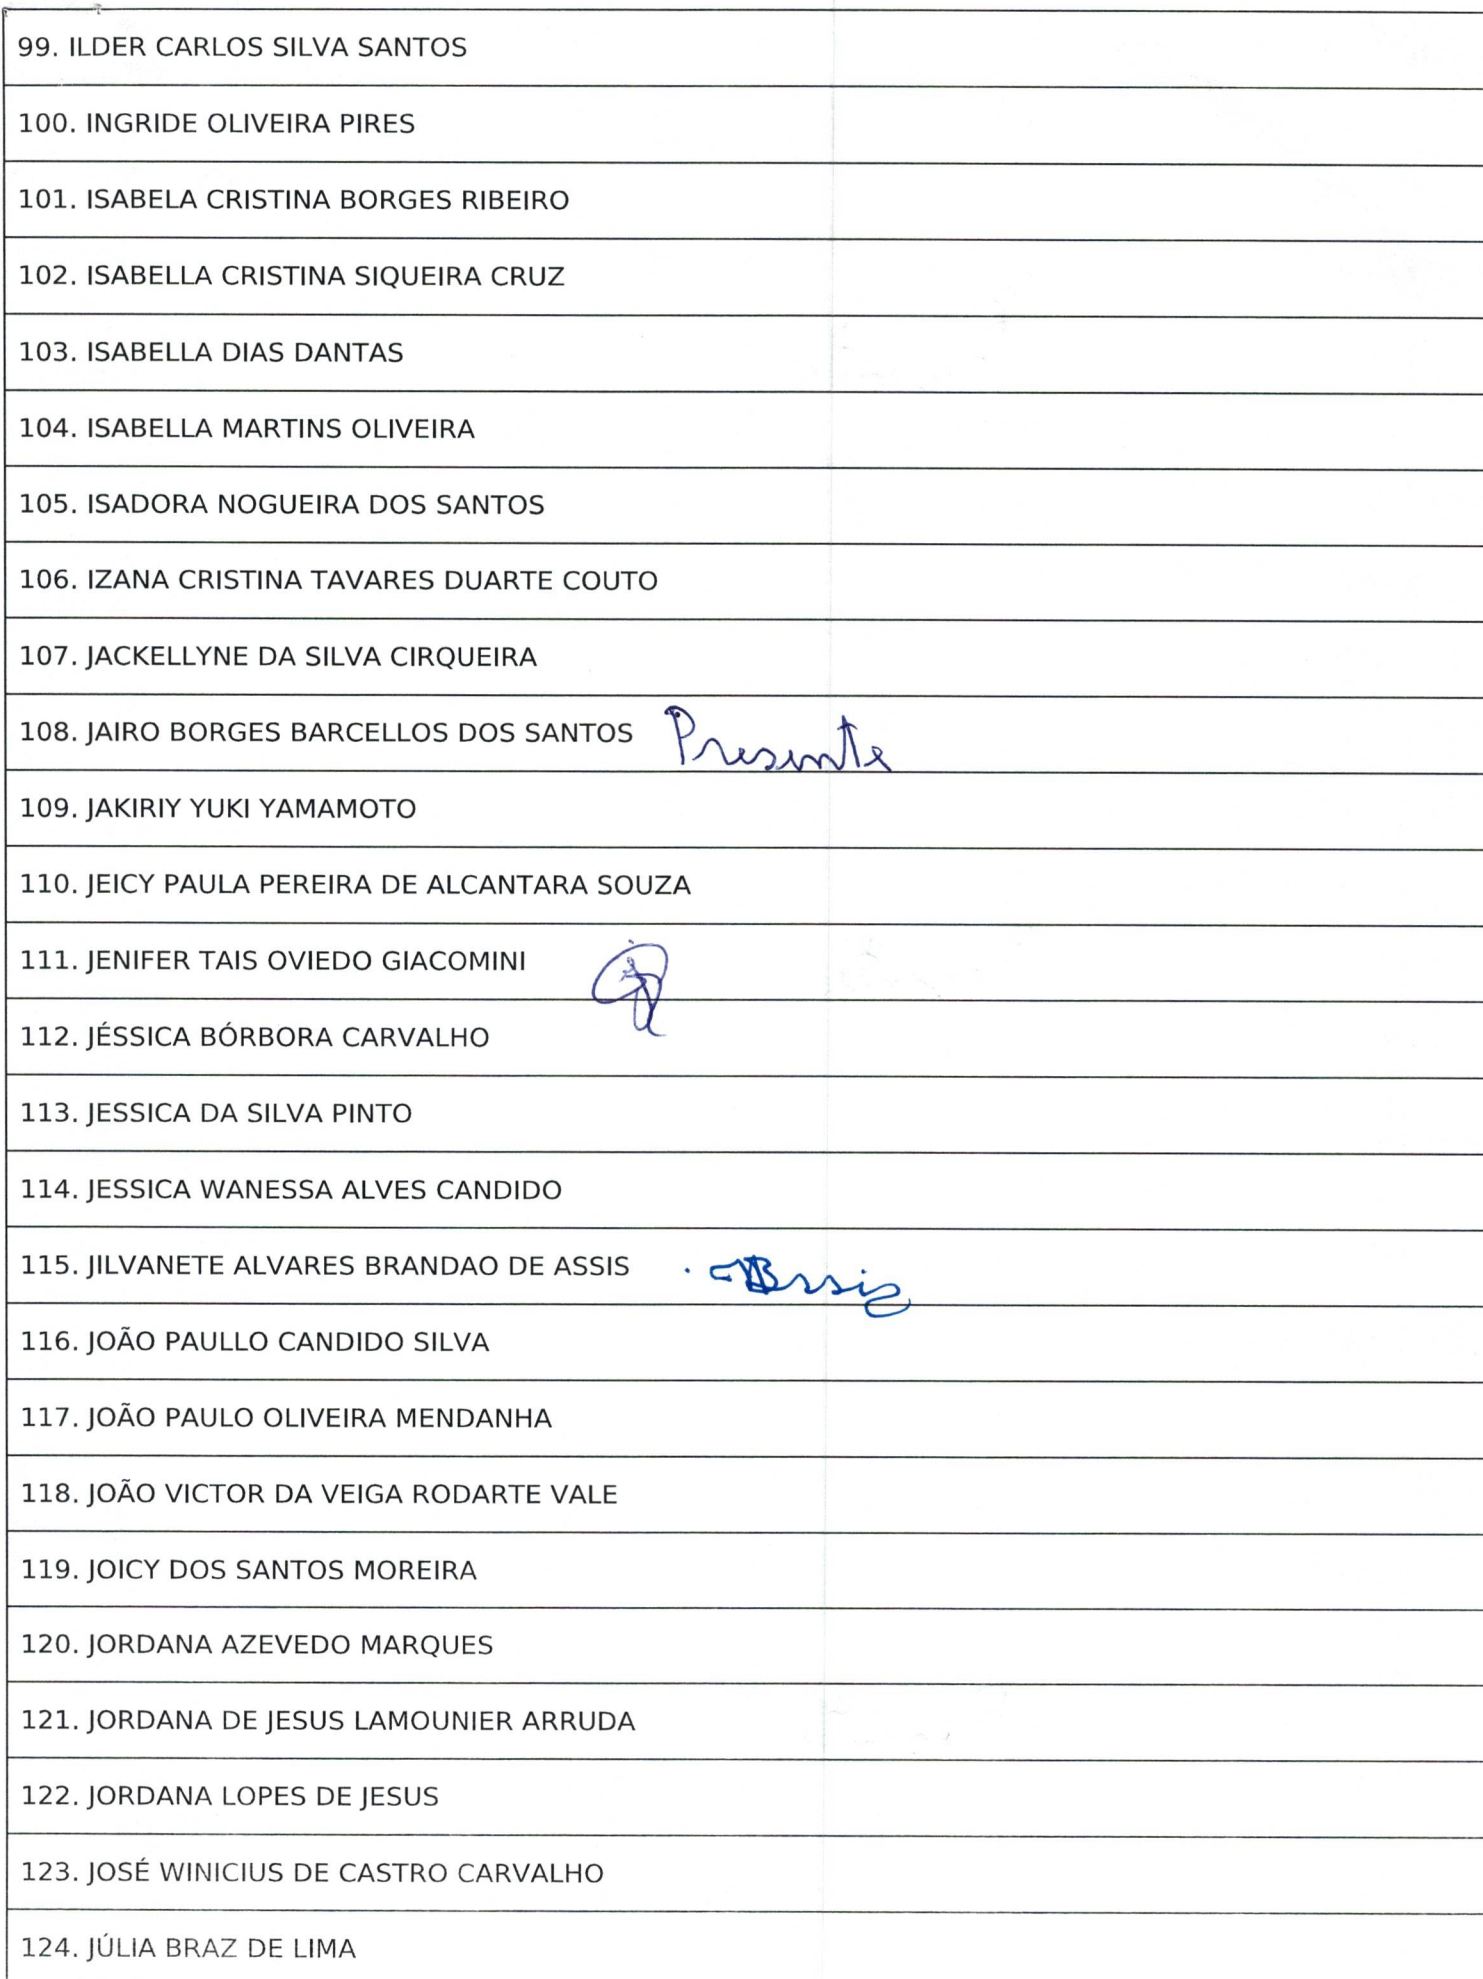 99. ILDER CARLOS SILVA SANTOS
100. INGRIDE OLIVEIRA PIRES
101. ISABELA CRISTINA BORGES RIBEIRO
102. ISABELLA CRISTINA SIQUEIRA CRUZ
103. ISABELLA DIAS DANTAS
104. ISABELLA MARTINS OLIVEIRA
105. ISADORA NOGUEIRA DOS SANTOS
106. IZANA CRISTINA TAVARES DUARTE COUTO
107. JACKELLYNE DA SILVA CIRQUEIRA
108. JAIRO BORGES BARCELLOS DOS SANTOS Presente
109. JAKIRIY YUKI YAMAMOTO
110. JEICY PAULA PEREIRA DE ALCANTARA SOUZA
111. JENIFER TAIS OVIEDO GIACOMINI
112. JÉSSICA BÓRBORA CARVALHO
113. JESSICA DA SILVA PINTO
114. JESSICA WANESSA ALVES CANDIDO
115. JILVANETE ALVARES BRANDAO DE ASSIS
116. JOÃO PAULLO CANDIDO SILVA
117. JOÃO PAULO OLIVEIRA MENDANHA
118. JOÃO VICTOR DA VEIGA RODARTE VALE
119. JOICY DOS SANTOS MOREIRA
120. JORDANA AZEVEDO MARQUES
121. JORDANA DE JESUS LAMOUNIER ARRUDA
122. JORDANA LOPES DE JESUS
123. JOSÉ WINICIUS DE CASTRO CARVALHO
124. JÚLIA BRAZ DE LIMA